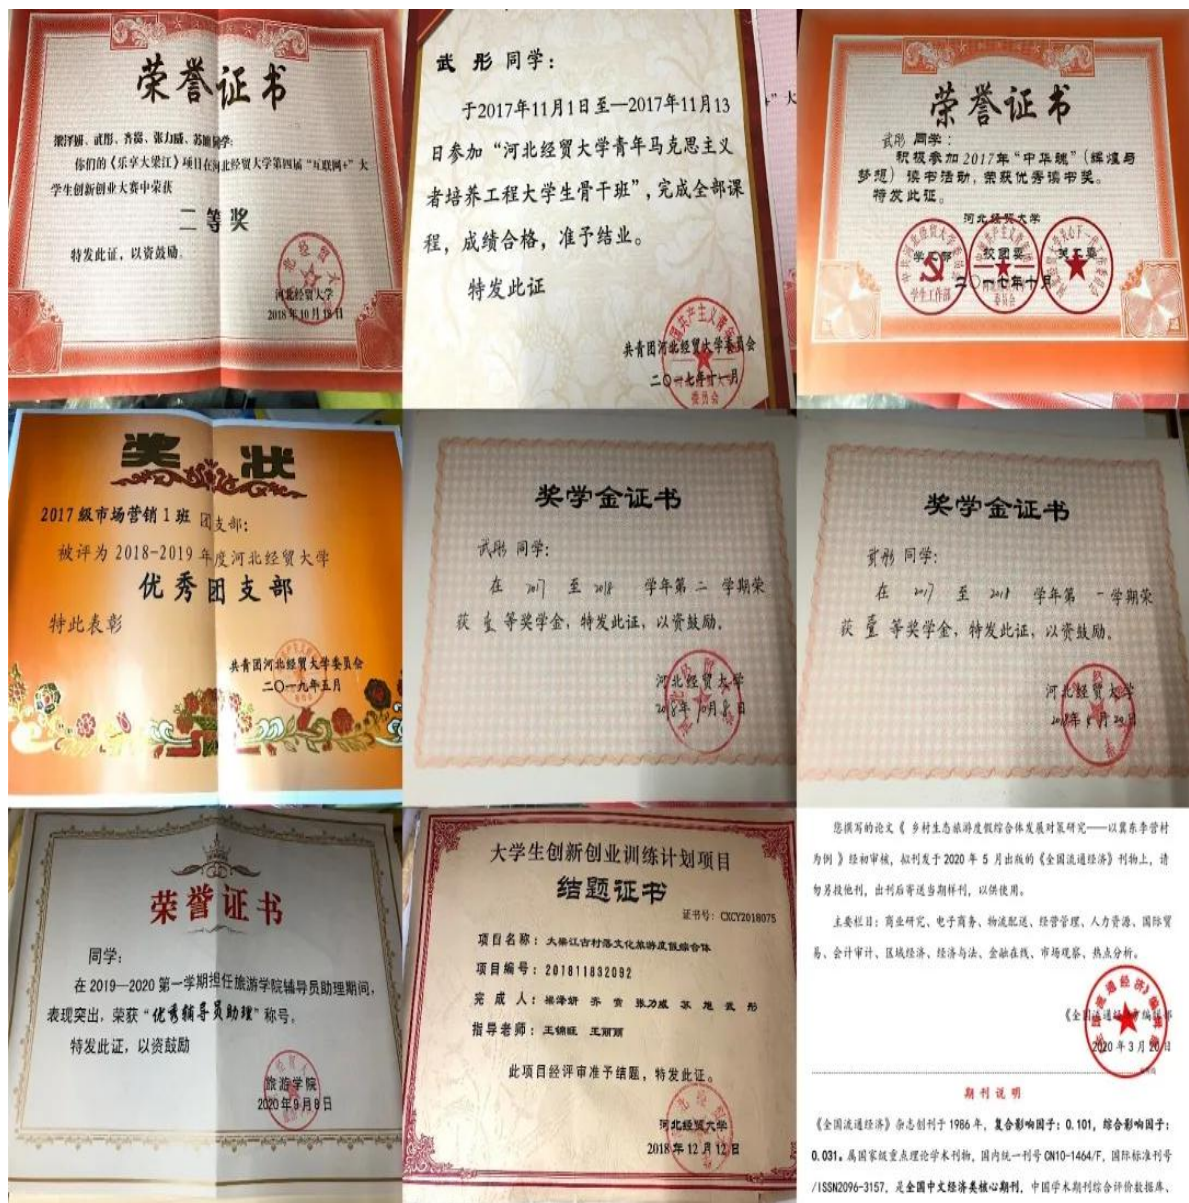 荣誉证书
梁泽妍、武彤、齐赍、张力威、苏旭同学:
你们的《乐享大梁江》项目在河北经贸大学第四届“互联网+”大
学生创新创业大赛中荣获
二等奖
特发此证，以资鼓励。
河北经贸大学
2018年10月18日
武 彤 同学：
于2017年11月1日至—2017年11月13
日参加“河北经贸大学青年马克思主义
者培养工程大学生骨干班”，完成全部课
程，成绩合格，准予结业。
特发此证
共青团河北经贸大学委员会
二〇一七年十一月
荣誉证书
武彤 同学：
积极参加2017年“中华魂”（辉煌与
梦想）读书活动，荣获优秀读书奖。
特发此证。
河北经贸大学
学工部 校团委 关工委
二〇一七年十月
奖状
2017级市场营销1班 团支部：
被评为2018-2019年度河北经贸大学
优秀团支部
特此表彰
共青团河北经贸大学委员会
二〇一九年五月
奖学金证书
武彤 同学：
在 2017 至 2018 学年第 二 学期荣
获 壹 等奖学金，特发此证，以资鼓励。
河北经贸大学
2018年10月8日
奖学金证书
武彤 同学：
在 2017 至 2018 学年第 一 学期荣
获 壹 等奖学金，特发此证，以资鼓励。
河北经贸大学
2018年5月20日
荣誉证书
同学：
在2019—2020第一学期担任旅游学院辅导员助理期间，
表现突出，荣获“优秀辅导员助理”称号。
特发此证，以资鼓励
旅游学院
2020年9月8日
大学生创新创业训练计划项目
结题证书
证书号：CXCY2018075
项目名称：大梁江古村落文化旅游度假综合体
项目编号：201811832092
完 成 人：梁泽妍 齐赍 张力威 苏旭 武彤
指导老师：王锦旺 王丽丽
此项目经评审准予结题，特发此证。
河北经贸大学
2018年12月12日
您撰写的论文《 乡村生态旅游度假综合体发展对策研究——以冀东李营村
为例 》经初审核，拟刊发于2020年 5 月出版的《全国流通经济》刊物上，请
勿另投他刊，出刊后寄送当期样刊，以供使用。
主要栏目：商业研究、电子商务、物流配送、经营管理、人力资源、国际贸
易、会计审计、区域经济、经济与法、金融在线、市场观察、热点分析。
《全国流通经济》编辑部
2020年3月20日
期刊说明
《全国流通经济》杂志创刊于1986年，复合影响因子：0.101，综合影响因子：
0.031。属国家级重点理论学术刊物，国内统一刊号CN10-1464/F，国际标准刊号
/ISSN2096-3157，是全国中文经济类核心期刊，中国学术期刊综合评价数据库、